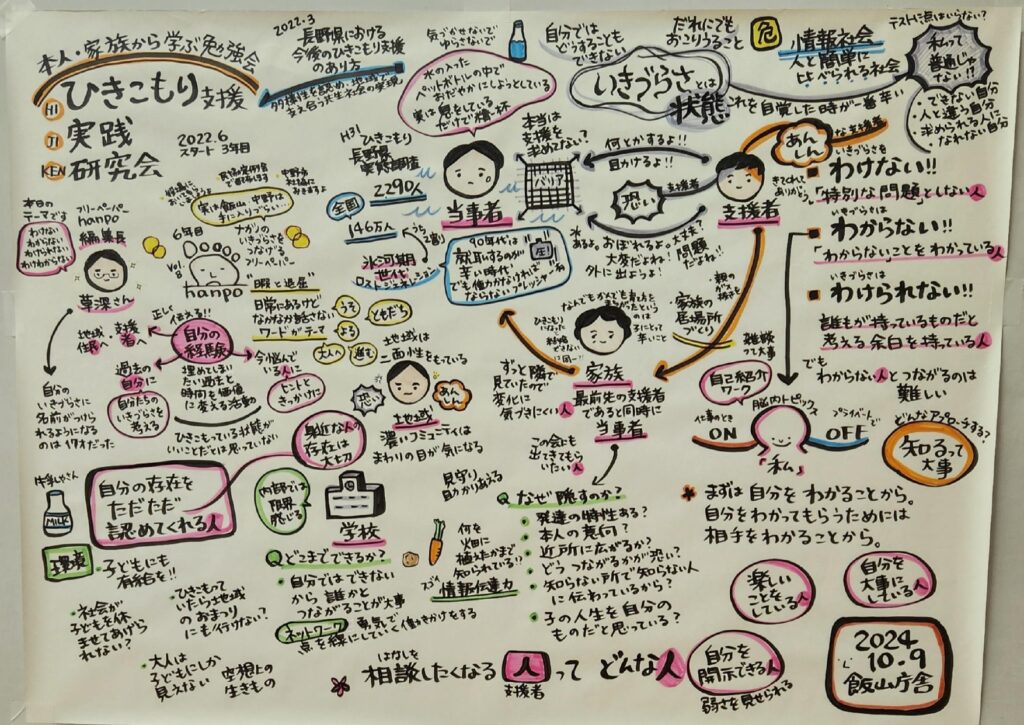 本人・家族から学ぶ勉強会
ひきこもり支援
HI
JI 実践
KEN 研究会
2022.6
スタート 3年目
2022.3
長野県における
今後のひきこもり支援
のあり方
多様性を認め、地域で
支え合う共生社会の実現
気づかせないで
ゆらさないで
水の入った
ペットボトルの中で
おだやかにしようとしている
実は息をしている
だけで精一杯
自分では
どうすることも
できない
だれにでも
おこりうること
いきづらさとは
状態
これを自覚した時が一番辛い
危
情報社会
人と簡単に
比べられる社会
テストに点はいらない?
私って
普通じゃ
ない!?
・できない自分
・人と違う自分
・求められる人に
なれない自分
H31
ひきこもり
長野県
実態調査
2290人
全国
146万人
うち
2割
当事者
本当は
支援を
求めてない?
バリア
何とかするよ!!
助けるよ!!
恐い
支援者
支援者
あんしん
な支援者
きてくれて
ありがとう。
水
あるよ。おぼれるよ。大丈夫?
大変だよね!
外に出ようよ!
問題
だよね!!
氷河期
世代
ロストジェネレーション
いきづらさは
わけない!!
「特別な問題」としない人
いきづらさは
わからない!!
「わからない」ことをわかっている人
いきづらさは
わけられない!!
誰もが持っているものだと
考える余白を持っている人
でも
わからない人とつながるのは
難しい
本日の
テーマです
わけない
わからない
わけられない
わけわからない
フリーペーパー
hanpo
編集長
草深さん
6年目
ナガノの
いきづらさを
つなげる
フリーペーパー
Vol.8
hanpo
実は飯山・中野は
手に入りづらい
「暇と退屈」
日常にあるけど
なかなか話さない
ワードがテーマ
うそ
ともだち
よる
大人へ
進む
正しく
伝える!!
地域
住民へ
支援
者へ
自分の
経験
過去の
自分に
今悩んで
いる人に
埋めてしまい
たい過去と
時間を価値
に変える活動
ヒントと
きっかけに
自分の
いきづらさに
名前がつけら
れるようになる
のは17才だった
自分たちの
いきづらさを
考える
ひきこもっている状態が
いいことだとは思っていない
地域は
二面性をもっている
恐い
あんしん
地域
濃いコミュニティは
まわりの目が気になる
身近な人の
存在は
大切
家族
最前先の支援者
であると同時に
当事者
ずっと隣で
見ていたので
変化に
気づきにくい人
家族の
居場所
づくり
この会にも
出てきてもら
いたい人
雑談
って大事
自己紹介
ワーク
脳内トピックス
仕事のとき
ON
プライベートで
OFF
「私」
どんなアプローチする?
知るって
大事
牛乳やさん
MILK
自分の存在を
ただただ
認めてくれる人
環境
・子どもにも
有給を!!
・社会が
子どもを休
ませてあげら
れない?
・ひきこもって
いたら地域
のおまつり
にも行けない?
・大人は
子どもにしか
見えない
空想上の
生きもの
内部では
限界
感じる
学校
Q どこまでできるか?
・自分ではできない
から誰かと
つながることが大事
ネットワーク
勇気で
点を線にしていく働きかけをする
見守り
助かりあえる
何を
畑に
植えたかまで
知られている!!
情報伝達力
Q なぜ隠すのか?
・発達の特性ある?
・本人の意向?
・近所に広がるか?
・どうつながるかが恐い?
・知らない所で知らない人
に伝わっているから?
・子の人生を自分の
ものだと思っている?
まずは自分をわかることから。
自分をわかってもらうためには
相手をわかることから。
楽しい
ことを
している人
自分を
大事に
している人
はなしを
相談したくなる人ってどんな人
支援者
自分を
開示できる人
弱さを見せられる
2024
10.9
飯山庁舎